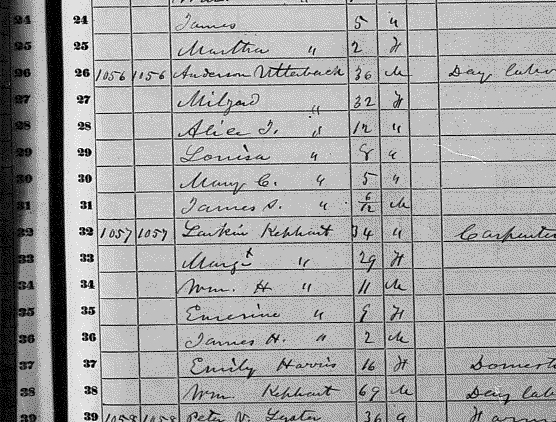 24 24 James 5 "
25 25 Martha " 2 F
26 26 1056 1056 Anderson Utterback 36 M Day labo
27 27 Milzad " 32 F
28 28 Alice F. " 12 "
29 29 Louisa " 8 "
30 30 Mary C. " 5 "
31 31 James S. " 6/12 M
32 32 1057 1057 Larkin Kephart 34 " Carpenter
33 33 Margt " 29 F
34 34 Wm. H " 11 M
35 35 Emerine " 9 F
36 36 James H. " 2 M
37 37 Emily Harris 16 F Domest
38 38 Wm. Kephart 69 M Day lab
39 39 1058 1058 Peter V. Lyster 36 " Farm